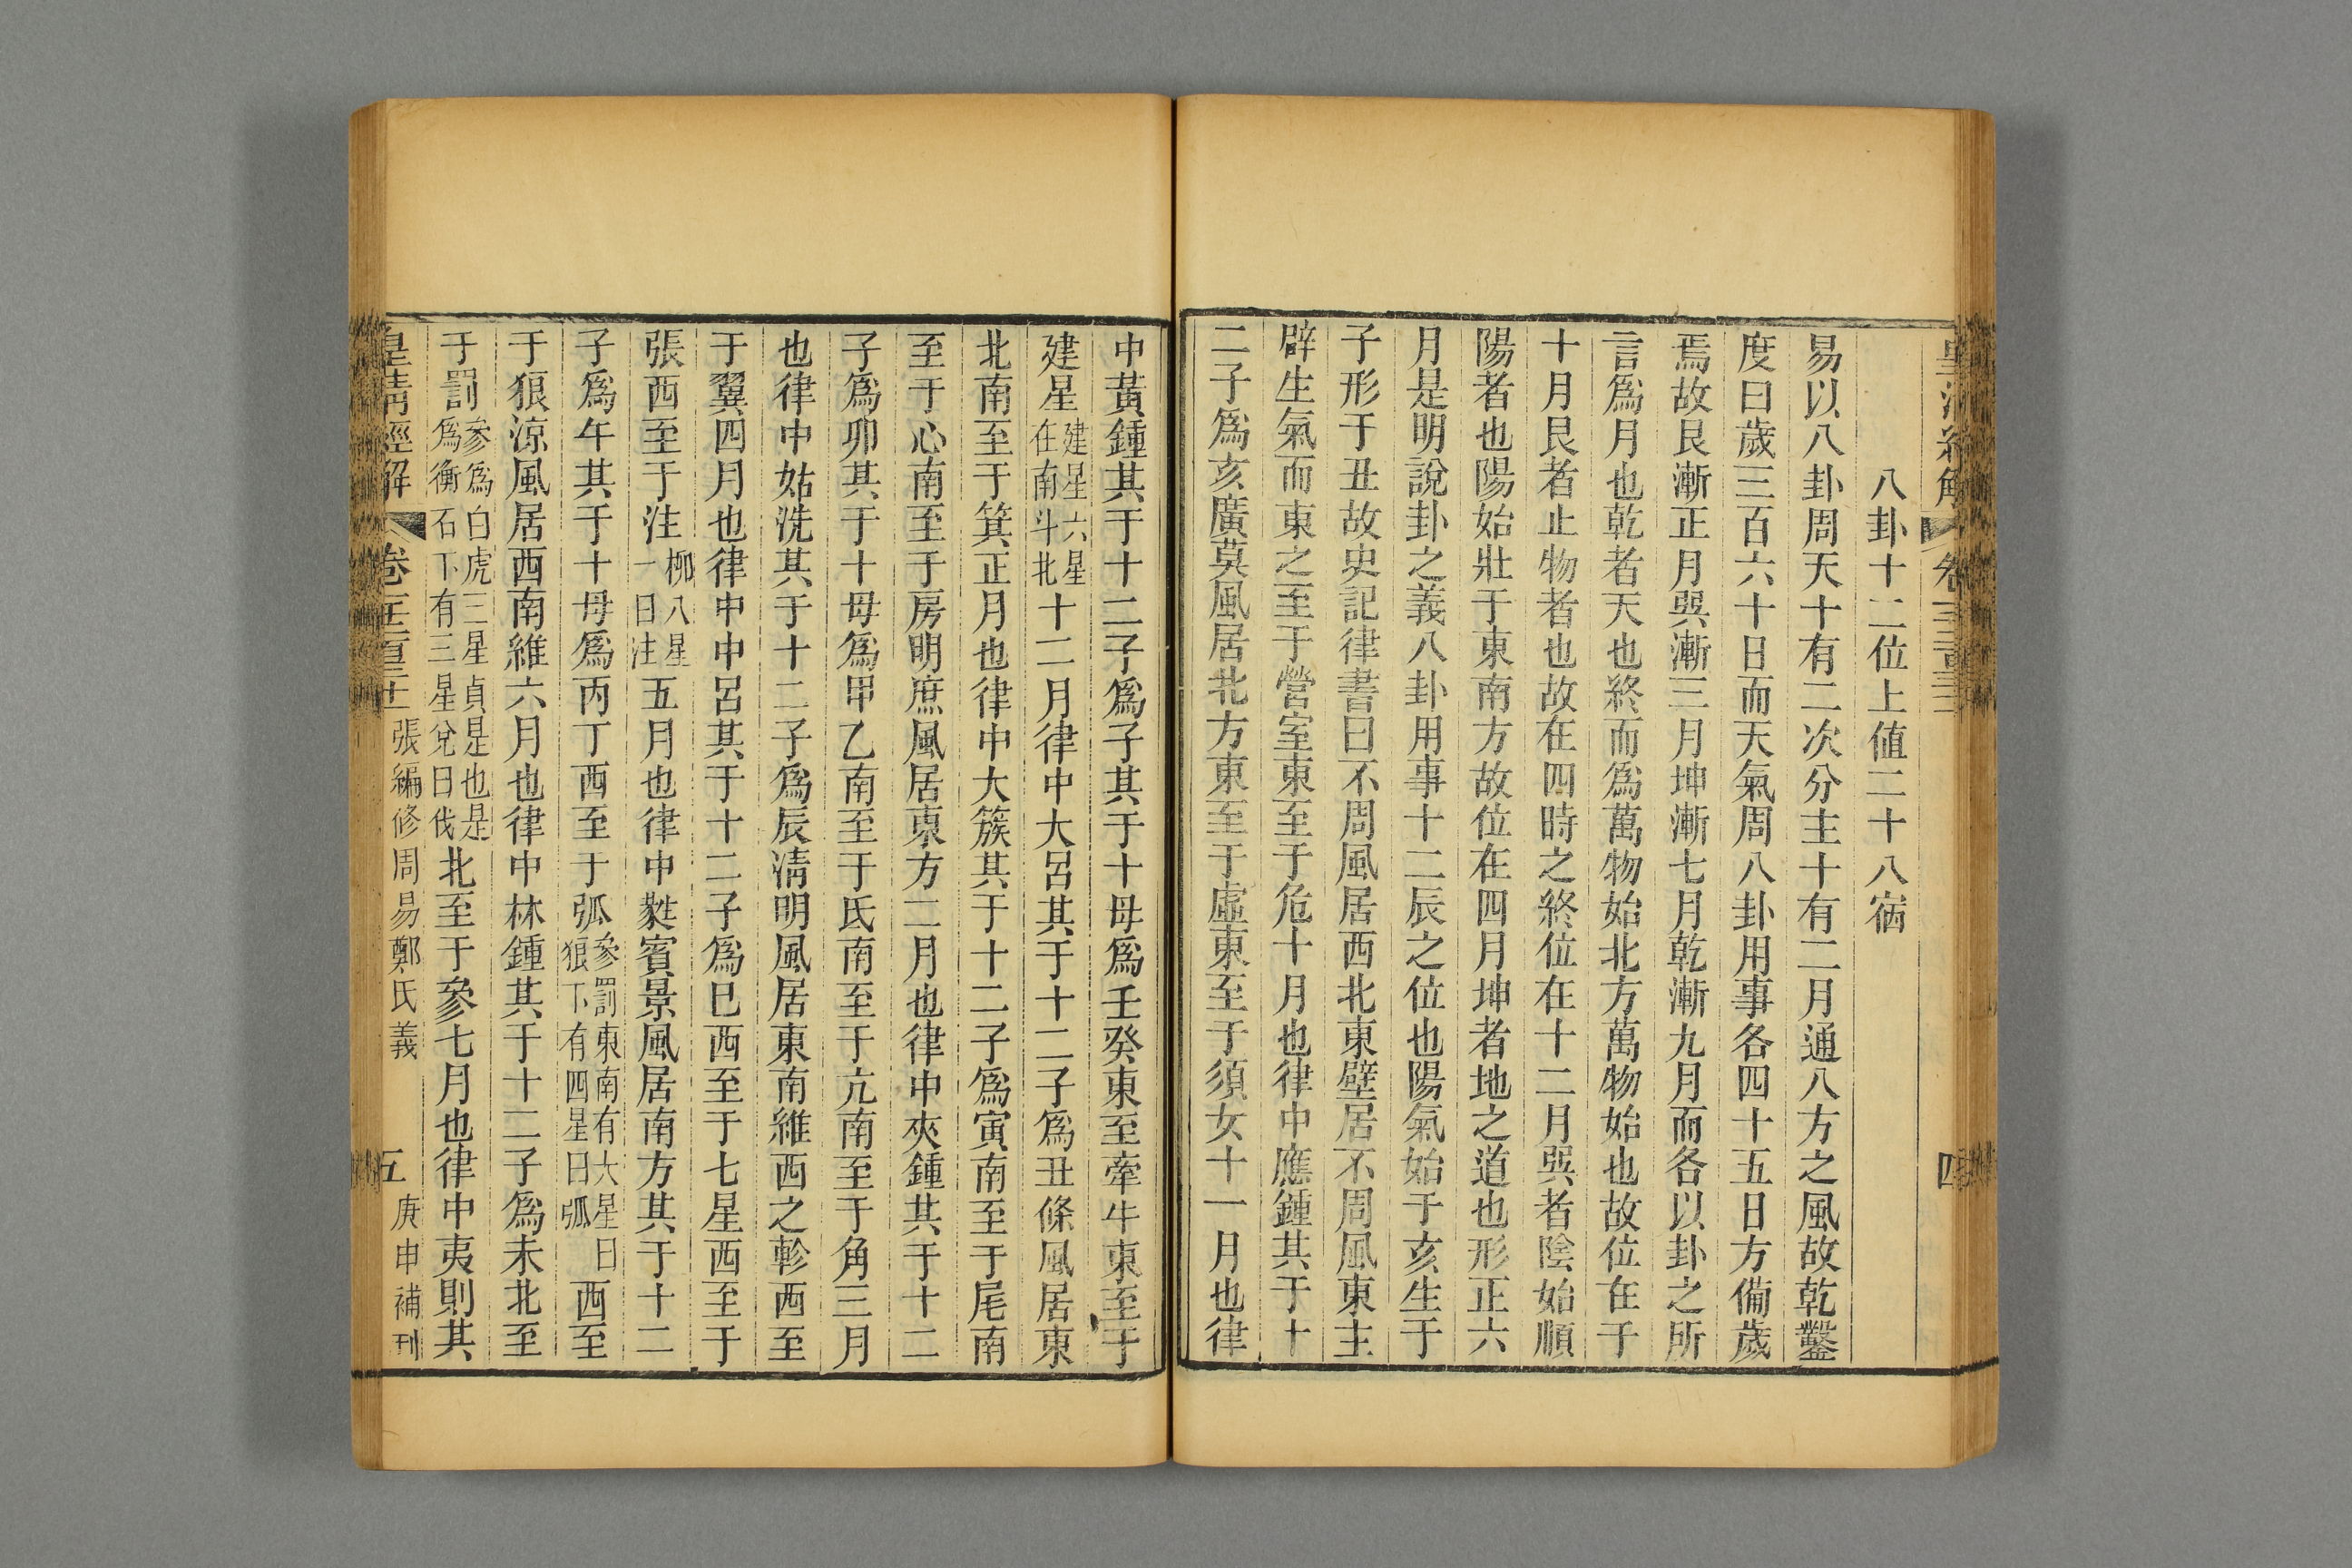 八卦十二位上値二十八宿
易以八卦周天十有二次分主十有二月通八方之風故乾鑿
度曰歲三百六十日而天氣周八卦用事各四十五日方備歲
焉故艮漸正月巽漸三月坤漸七月乾漸九月而各以卦之所
言爲月也乾者天也終而爲萬物始北方萬物始也故位在于
十月艮者止物者也故在四時之終位在十二月巽者陰始順
陽者也陽始壯于東南方故位在四月坤者地之道也形正六
月是明說卦之義八卦用事十二辰之位也陽氣始于亥生于
子形于丑故史記律書曰不周風居西北東壁居不周風東主
辟生氣而東之至于營室東至于危十月也律中應鍾其于十
二子爲亥廣莫風居北方東至于虛東至于須女十一月也律
中黃鍾其于十二子爲子其于十母爲壬癸東至牽牛東至于
建星建星六星在南斗北十二月律中大呂其于十二子爲丑條風居東
北南至于箕正月也律中大簇其于十二子爲寅南至于尾南
至于心南至于房明庶風居東方二月也律中夾鍾其于十二
子爲卯其于十母爲甲乙南至于氐南至于亢南至于角三月
也律中姑洗其于十二子爲辰淸明風居東南維西之軫西至
于翼四月也律中中呂其于十二子爲巳西至于七星西至于
張西至于注柳八星一曰注五月也律中蕤賓景風居南方其于十二
子爲午其于十母爲丙丁西至于弧參罰東南有大星曰狼下有四星曰弧西至
于狼涼風居西南維六月也律中林鍾其于十二子爲未北至
于罰參爲白虎三星貞是也是爲衡石下有三星兌曰伐北至于參七月也律中夷則其
皇淸經解
張編修周易鄭氏義
五
庚申補刊
四